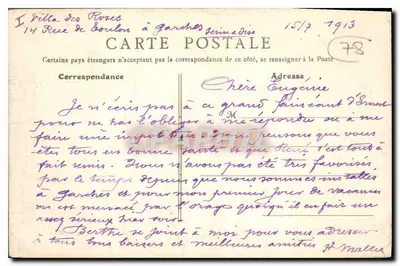 I Villa des Roses
14 Rue de Toulon à Garches
Seine & Oise
15/7 1913
78
CARTE POSTALE
Certains pays étrangers n'acceptant pas la correspondance de ce côté, se renseigner à la Poste
Correspondance
Adresse
Chère Eugénie
Je n'écris pas à ce grand fainéant d'Ernest
pour ne pas l'obliger à me répondre ou à me
faire une
pensons que vous
êtes tous en bonne santé et que René est tout à
fait remis. Nous n'avons pas été très favorisés
par le temps depuis que nous sommes installés
à Garches et pour mon premier jour de vacances
on est menacé par l'orage quoiqu'il en fait un
assez sérieux hier soir.
Berthe se joint à moi pour vous adresser
à tous nos baisers et meilleures amitiés